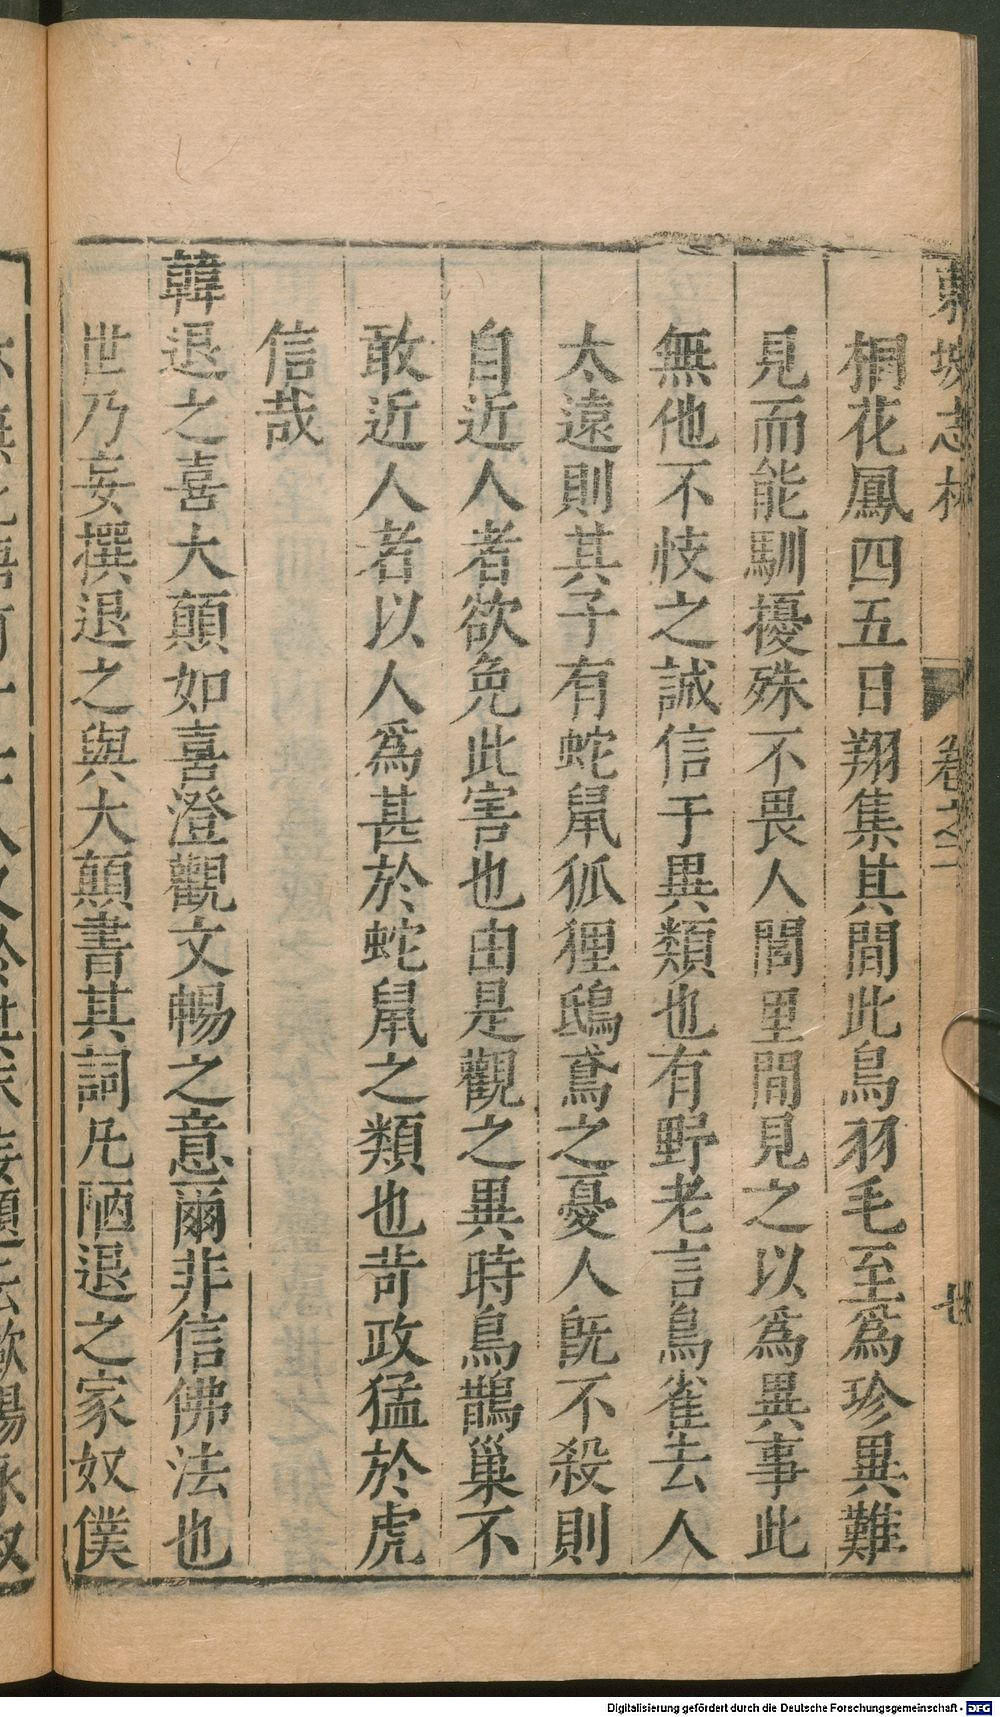 東坡志林 卷之二
桐花鳳四五日翔集其間此鳥羽毛至爲珍異難
見而能馴擾殊不畏人閭里間見之以爲異事此
無他不忮之誠信于異類也有野老言鳥雀去人
太遠則其子有蛇鼠狐狸鴟鳶之憂人旣不殺則
自近人者欲免此害也由是觀之異時鳥鵲巢不
敢近人者以人爲甚於蛇鼠之類也苛政猛於虎
信哉
韓退之喜大顛如喜澄觀文暢之意爾非信佛法也
世乃妄撰退之與大顛書其詞凡陋退之家奴僕
Digitalisierung gefördert durch die Deutsche Forschungsgemeinschaft - DFG